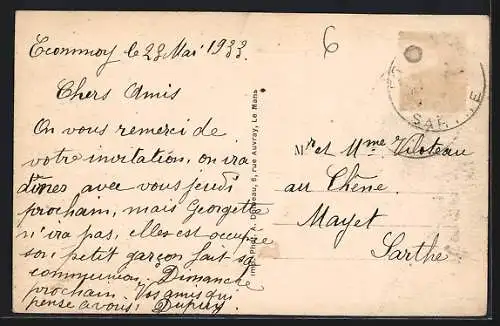 Ecommoy le 23 Mai 1933.
Chers Amis
On vous remerci de
votre invitation, on ira
dînes avec vous jeudi
prochain, mais Georgette
n'ira pas, elles est occupe
son petit garçon fait sa
communion. Dimanche
prochain. Vos amis qui
pense a vous: Dupuy
6
Mr et Mme Viloteau
au Chêne
Mayet
Sarthe
Imp. Phot. A. Dolbeau, 6, rue Auvray, Le Mans
SARTHE